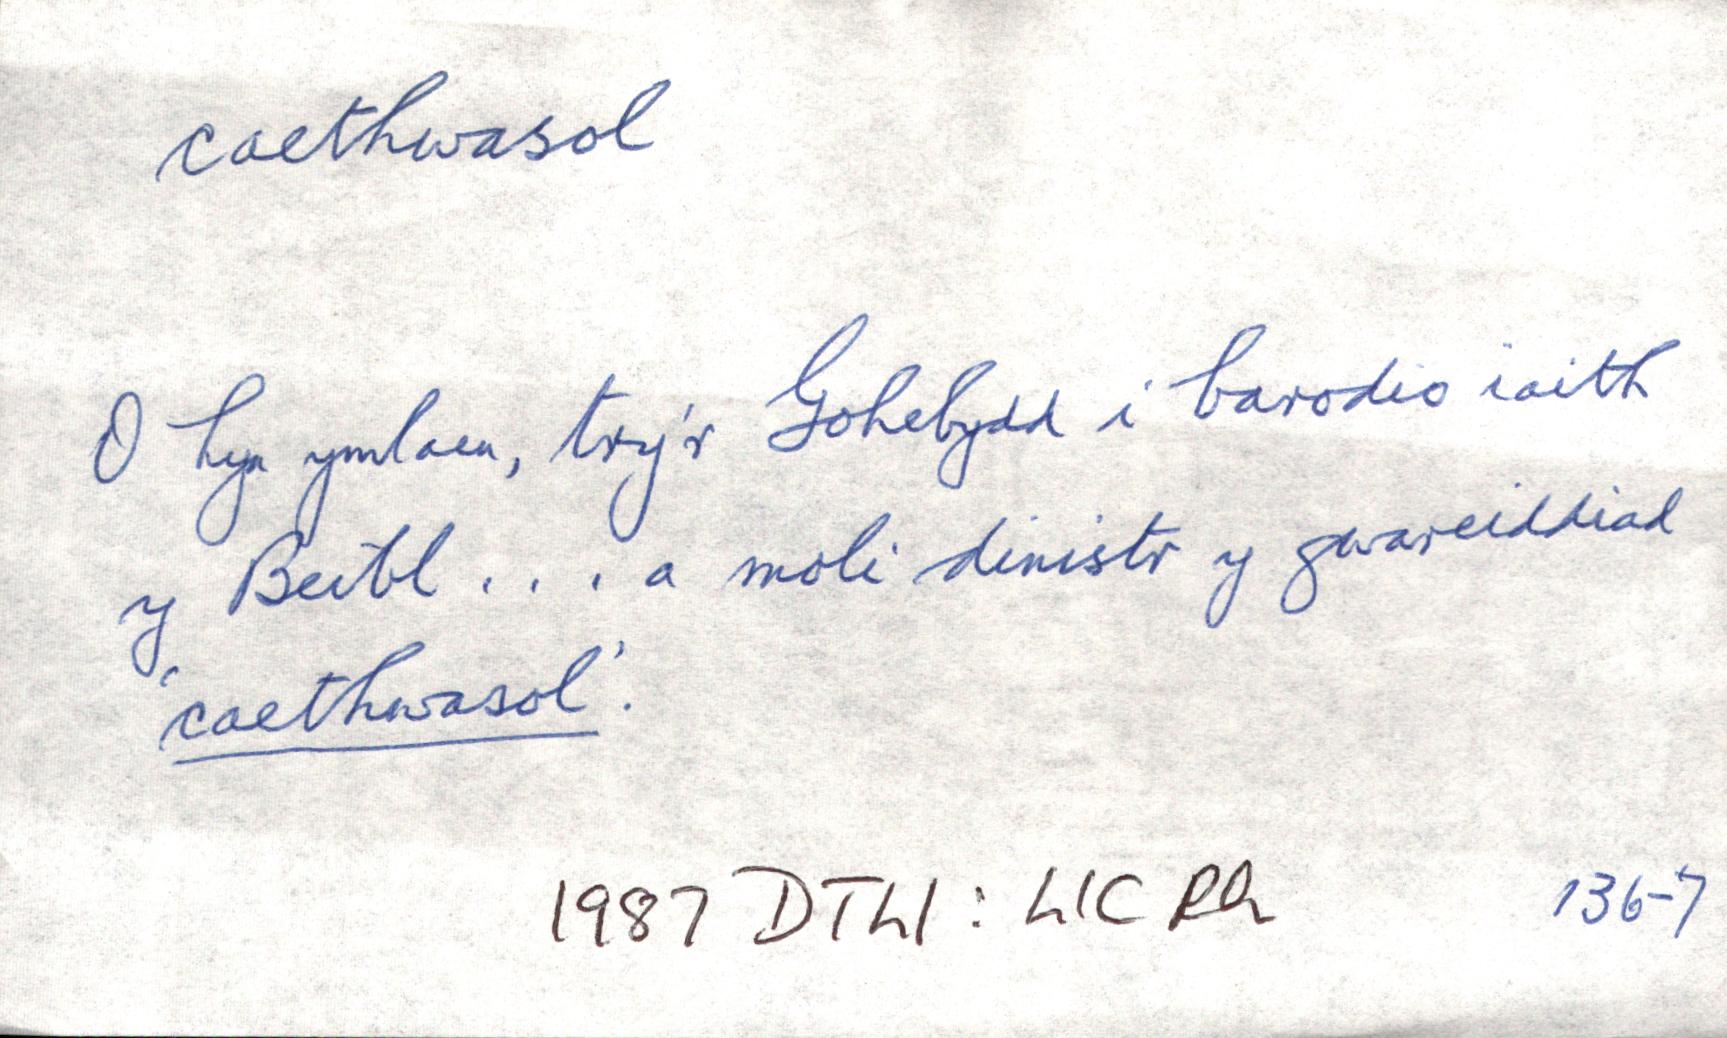 caethwasol
O hyn ymlaen, try'r Gohebydd i barodio iaith
y Beibl . . . a moli dinistr y gwareiddiad
'caethwasol'.
1987 DTLl : LlC Rh 136-7